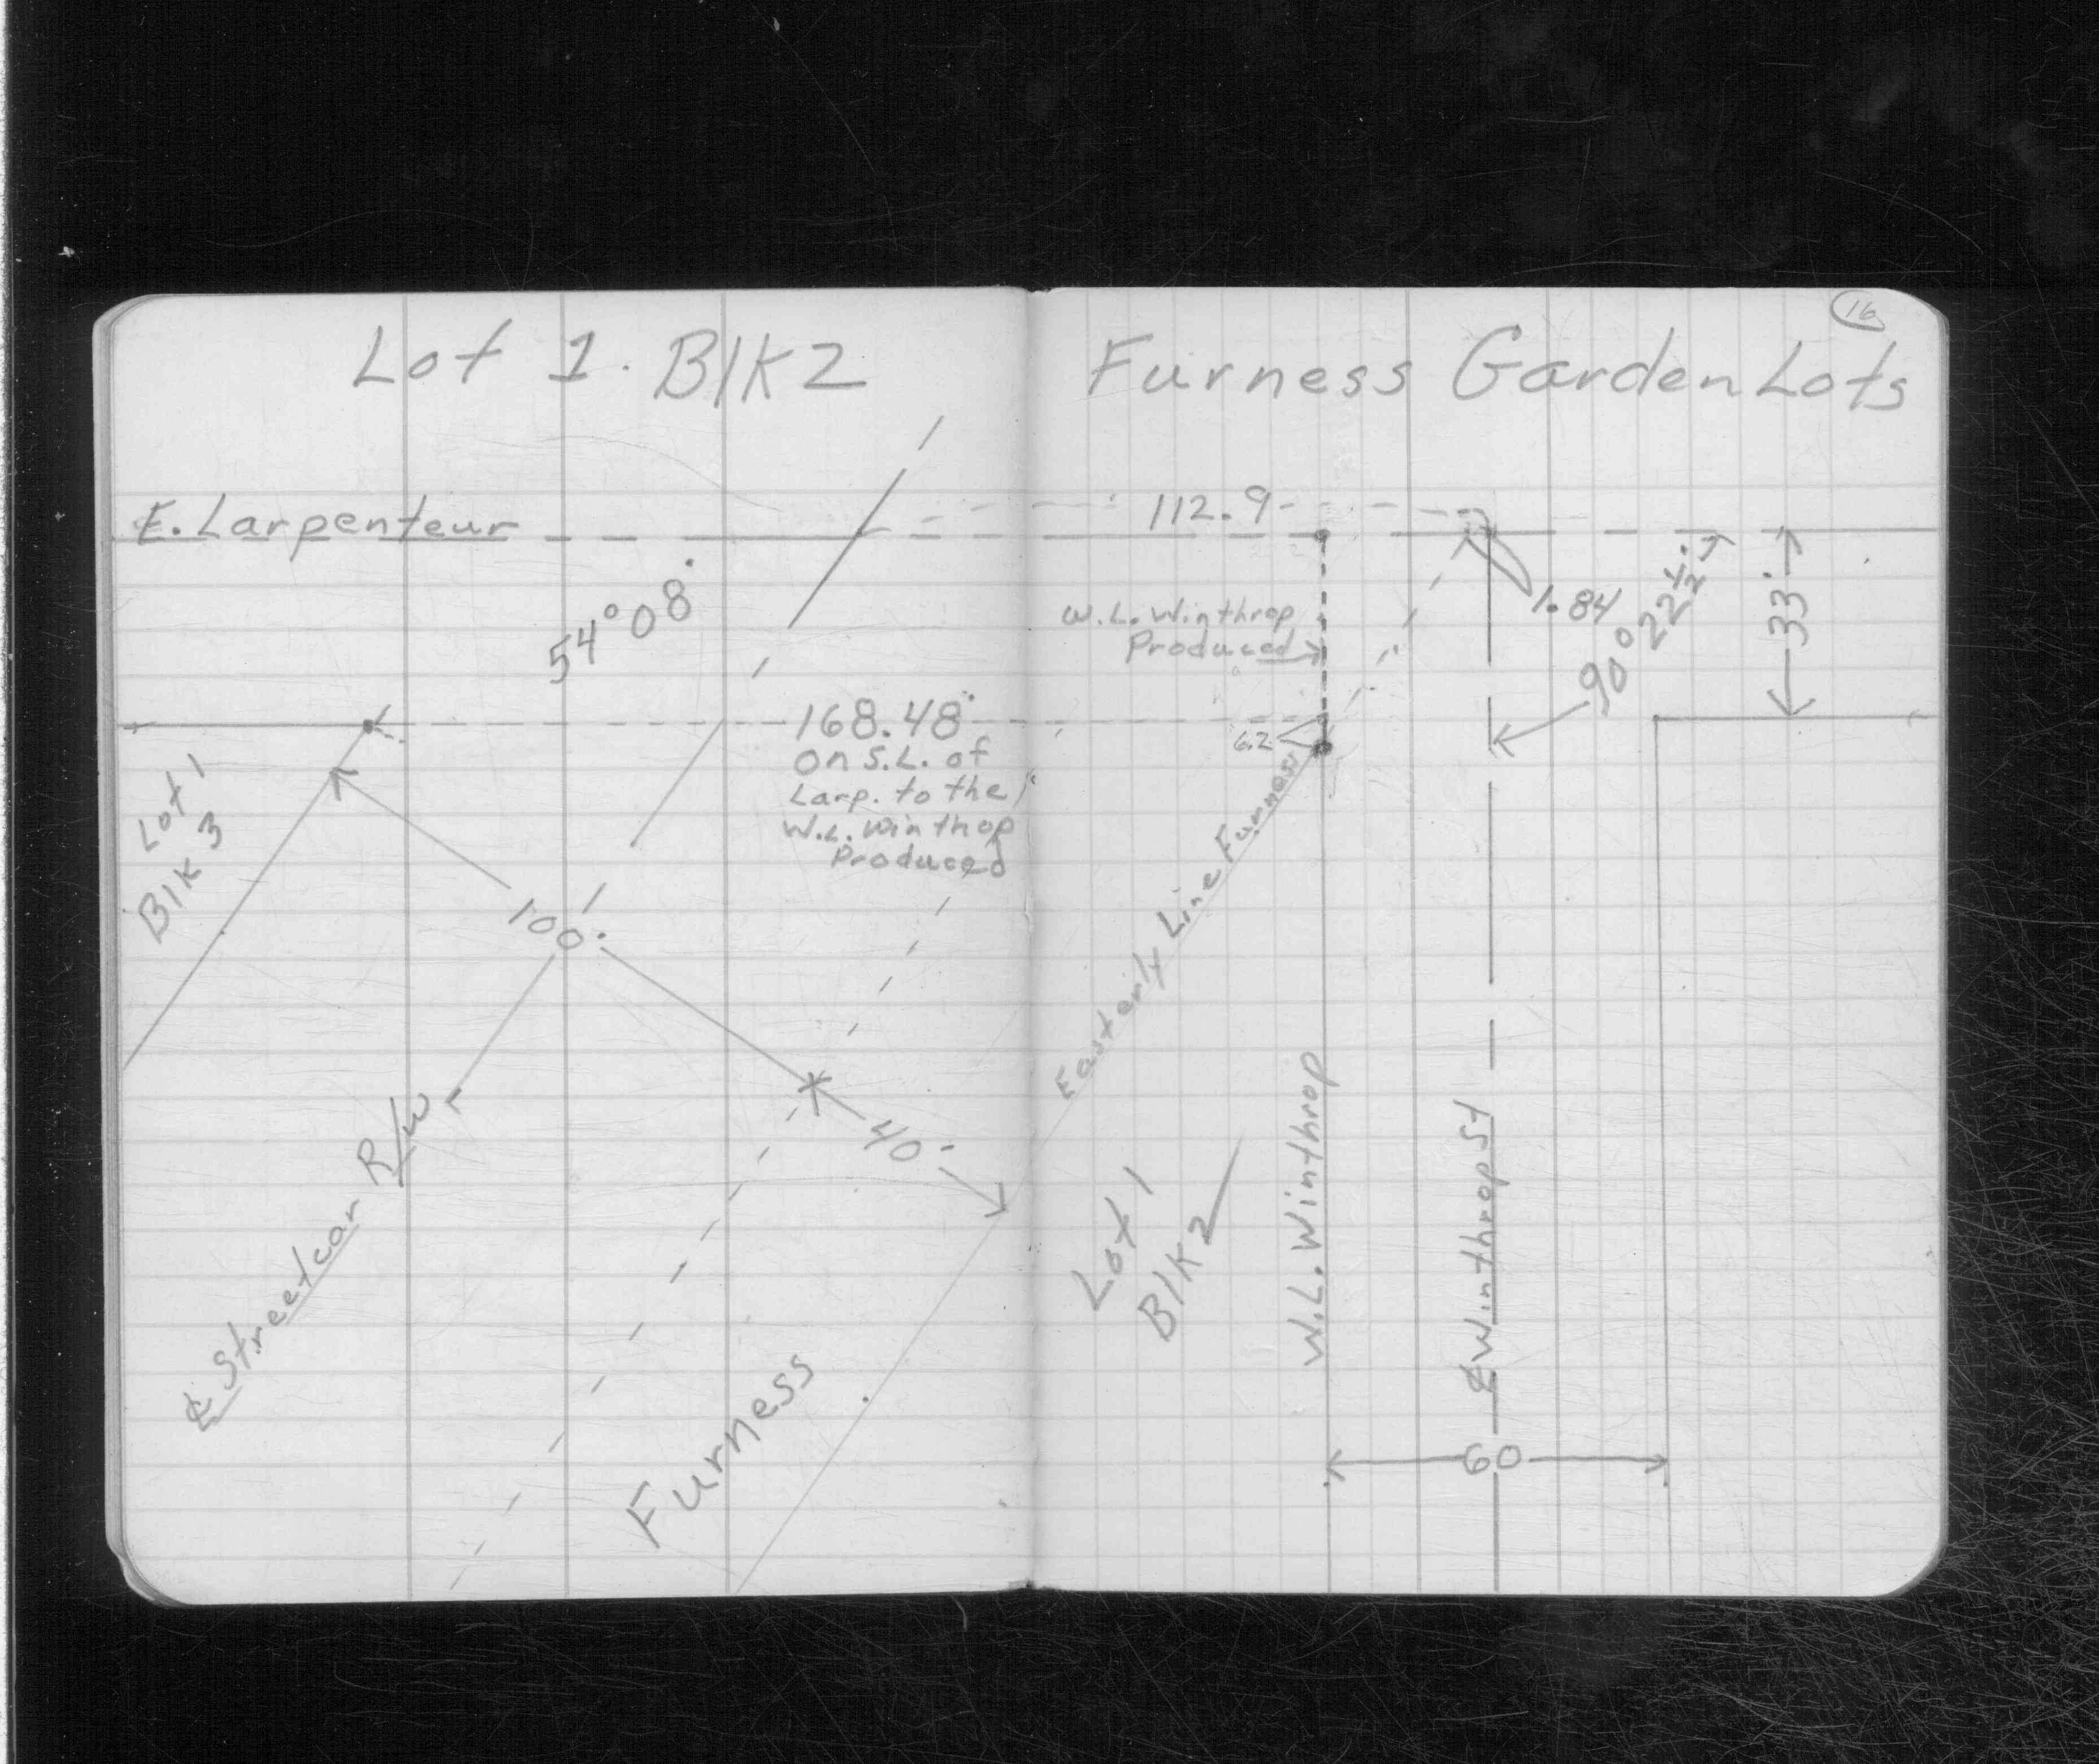 16
Lot 1. Blk 2 Furness Garden Lots
E. Larpenteur
112.9
54°08'
1.84
90°22½'
33'
W.L. Winthrop
Produced
168.48'
on S.L. of
Larp. to the
W.L. Winthop
Produced
6.2
Lot 1
Blk 3
100'
Easterly Line Furness
40'
℄ Streetcar R/W
Furness
Lot 1
Blk 2
W.L. Winthrop
℄ Winthrop St
60